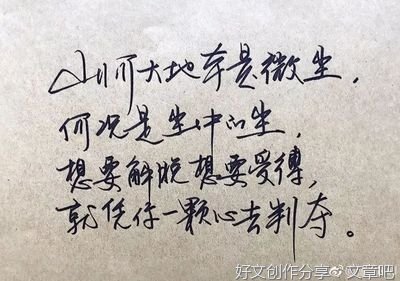 山河大地本是微尘，
何况是尘中的尘，
想要解脱想要受缚，
就凭你一颗心去判夺。
好文创作分享 文章吧